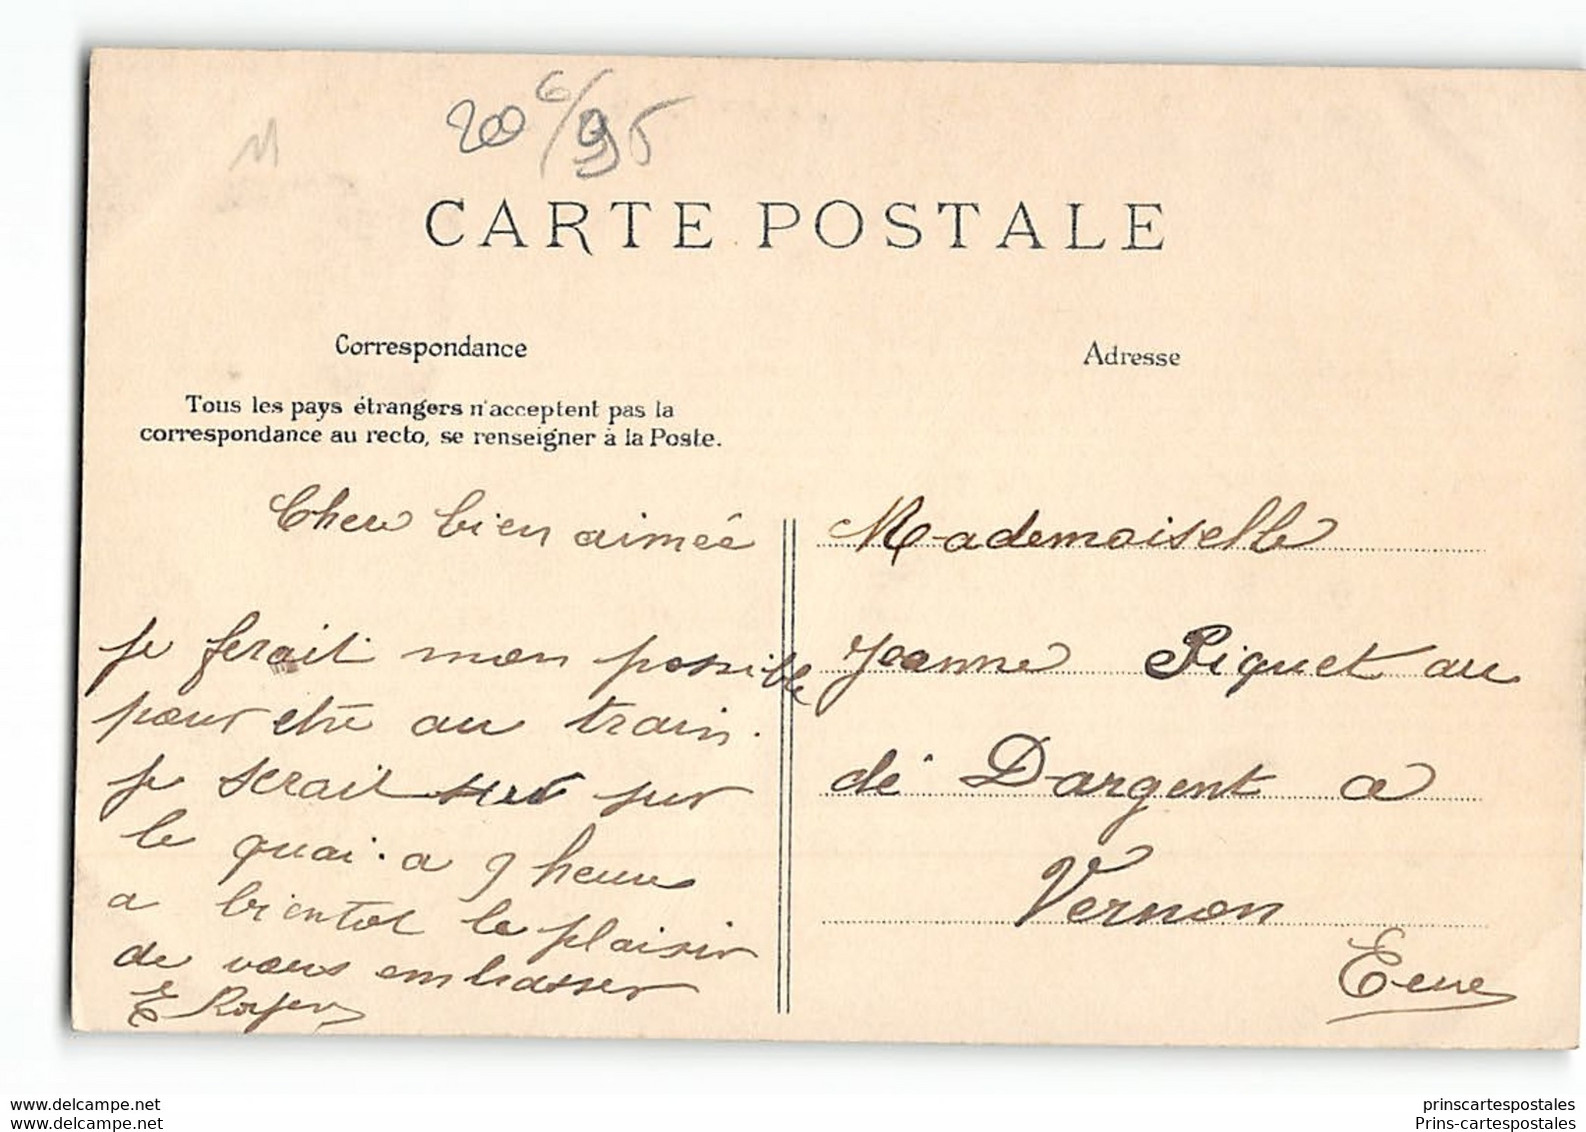 11
200 6/95
CARTE POSTALE
Correspondance
Adresse
Tous les pays étrangers n'acceptent pas la
correspondance au recto, se renseigner à la Poste.
Cher bien aimée
je ferait mon possible
pour etre au train.
je serait sur
le quai. a 9 heure
a bientot le plaisir
de vous embrasser
E Royer
Mademoiselle
Jeanne Piquet au
dé Dargent a
Vernon
Eure
www.delcampe.net
www.delcampe.net
prinscartespostales
Prins-cartespostales